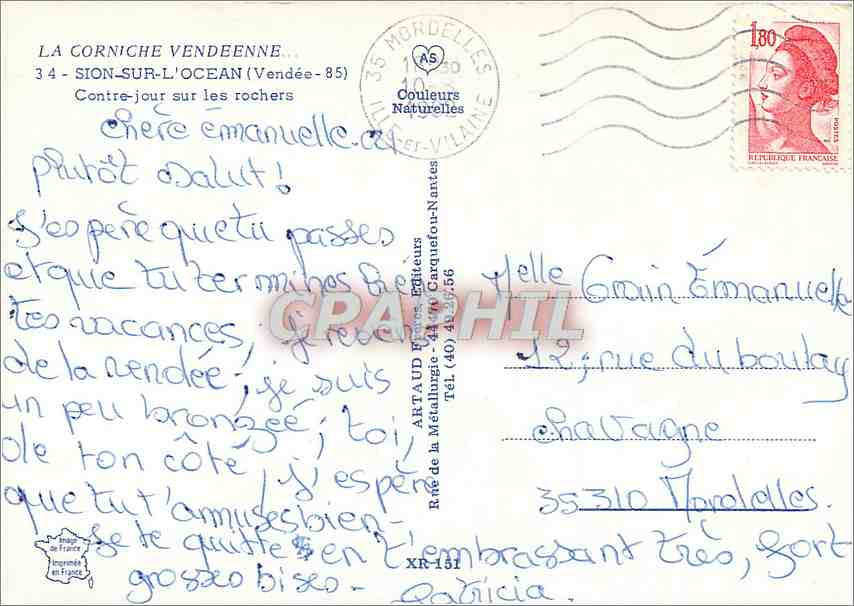 LA CORNICHE VENDEENNE...
34 - SION-SUR-L'OCEAN (Vendée - 85)
Contre-jour sur les rochers
AS
Couleurs
Naturelles
35 MORDELLES
ILLE-et-VILAINE
1,80
POSTES
REPUBLIQUE FRANCAISE
chère émanuelle.ou
plutôt salut!
J'espère que tu passes
et que tu termines bien
tes vacances, je reviens
de la vendée, je suis
un peu bronzée; toi,
de ton côté, j'espère
que tu t'amuses bien-
Je te quitte en t'embrassant très, fort
grosses bises- Patricia.
ARTAUD Frères, Editeurs
Rue de la Métallurgie - 44470 Carquefou-Nantes
Tél. (40) 49.26.56
CPAPHIL
Melle Grain Émmanuelle
12, rue du boulay
chavagne
35310 Mordelles.
Image
de France
Imprimée
en France
XR 151